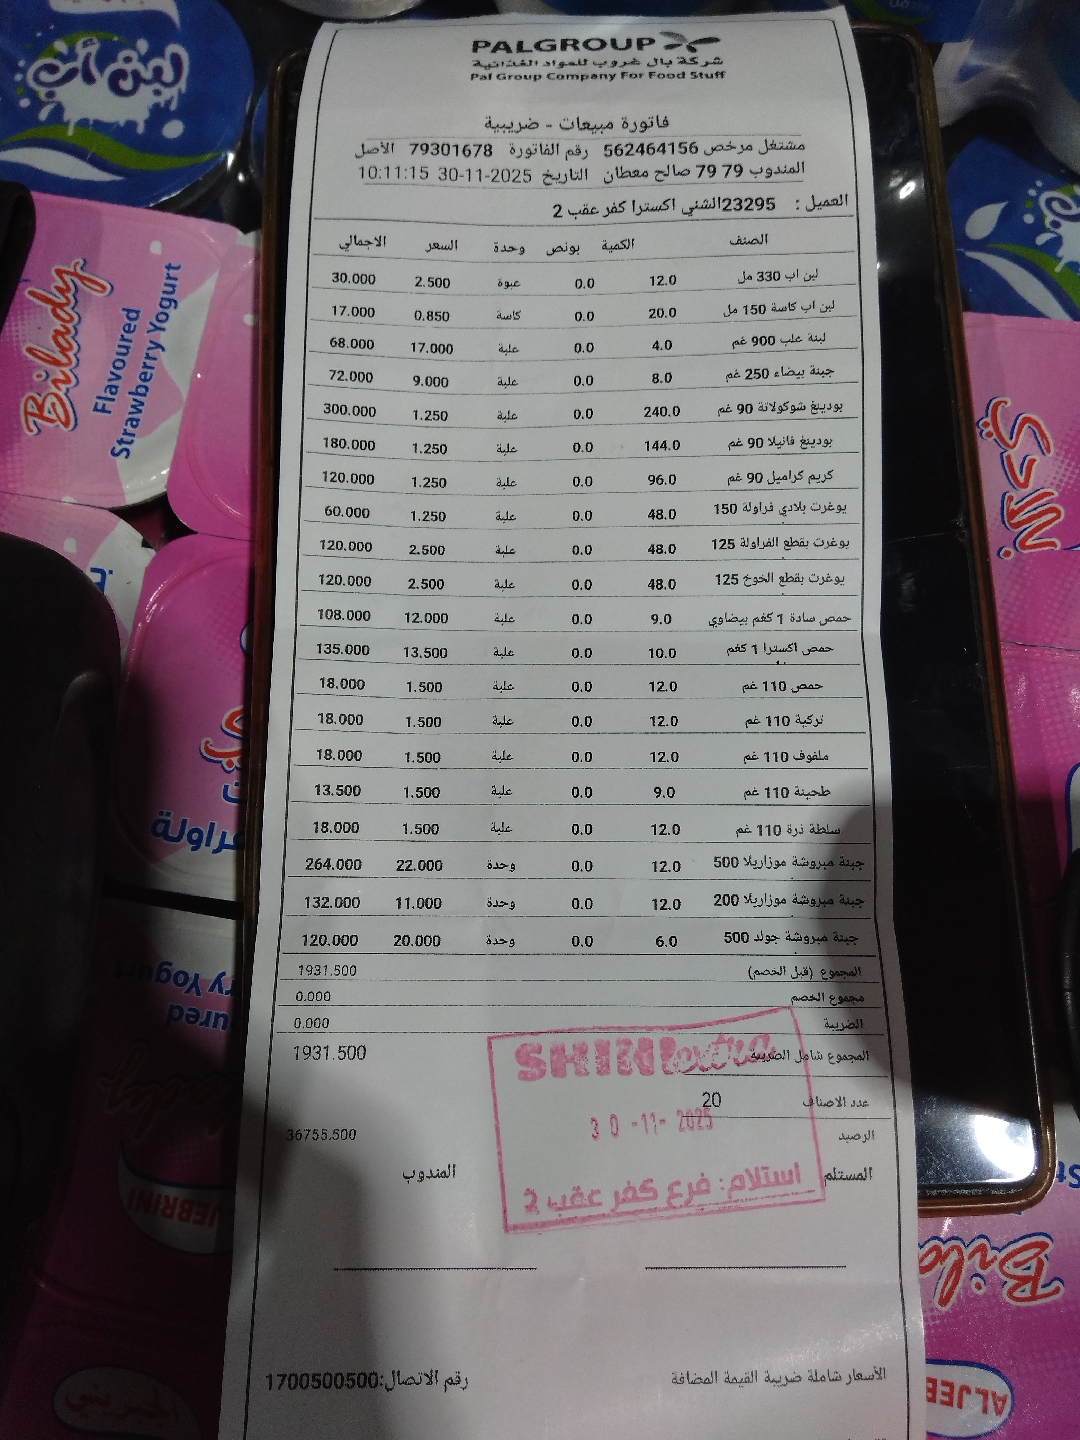 PALGROUP
شركة بال غروب للمواد الغذائية
Pal Group Company For Food Stuff
فاتورة مبيعات - ضريبية
مشتغل مرخص 562464156 رقم الفاتورة 79301678 الأصل
المندوب 79 79 صالح معطان التاريخ 30-11-2025 10:11:15
العميل : 23295الشني اكسترا كفر عقب 2
الصنف الكمية بونص وحدة السعر الاجمالي
لبن اب 330 مل 12.0 0.0 عبوة 2.500 30.000
لبن اب كاسة 150 مل 20.0 0.0 كاسة 0.850 17.000
لبنة علب 900 غم 4.0 0.0 علبة 17.000 68.000
جبنة بيضاء 250 غم 8.0 0.0 علبة 9.000 72.000
بودينغ شوكولاتة 90 غم 240.0 0.0 علبة 1.250 300.000
بودينغ فانيلا 90 غم 144.0 0.0 علبة 1.250 180.000
كريم كراميل 90 غم 96.0 0.0 علبة 1.250 120.000
يوغرت بلادي فراولة 150 48.0 0.0 علبة 1.250 60.000
يوغرت بقطع الفراولة 125 48.0 0.0 علبة 2.500 120.000
يوغرت بقطع الخوخ 125 48.0 0.0 علبة 2.500 120.000
حمص سادة 1 كغم بيضاوي 9.0 0.0 علبة 12.000 108.000
حمص اكسترا 1 كغم 10.0 0.0 علبة 13.500 135.000
حمص 110 غم 12.0 0.0 علبة 1.500 18.000
تركية 110 غم 12.0 0.0 علبة 1.500 18.000
ملفوف 110 غم 12.0 0.0 علبة 1.500 18.000
طحينة 110 غم 9.0 0.0 علبة 1.500 13.500
سلطة ذرة 110 غم 12.0 0.0 علبة 1.500 18.000
جبنة مبروشة موزاريلا 500 12.0 0.0 وحدة 22.000 264.000
جبنة مبروشة موزاريلا 200 12.0 0.0 وحدة 11.000 132.000
جبنة مبروشة جولد 500 6.0 0.0 وحدة 20.000 120.000
المجموع (قبل الخصم) 1931.500
مجموع الخصم 0.000
الضريبة 0.000
المجموع شامل الضريبة 1931.500
عدد الاصناف 20
الرصيد 36755.500
المستلم المندوب
SHINI extra
30 -11- 2025
استلام: فرع كفر عقب 2
الأسعار شاملة ضريبة القيمة المضافة رقم الاتصال:1700500500
لبن أب
Bilady
Flavoured
Strawberry Yogurt
فراولة
ry Yogurt
ured
JEBRINI
الجبريني
بلادي
Bila
ALJEB